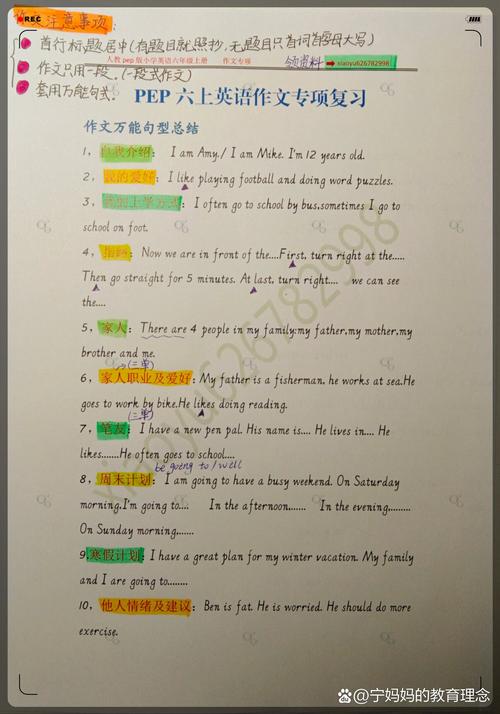 作文注意事项:
REC
首行标题居中(有题目就照抄,无题目只首词首字母大写)
人教pep版小学英语六年级上册 作文专项
领资料 xiaoyu626782998
作文只用一段.(一段式作文)
套用万能句式.
PEP 六上英语作文专项复习
作文万能句型总结
1, 自我介绍: I am Amy./ I am Mike. I'm 12 years old.
2, 我的爱好: I like playing football and doing word puzzles.
3, 我的上学方式: I often go to school by bus,sometimes I go to
school on foot.
4, 指路: Now we are in front of the....First, turn right at the.....
Then go straight for 5 minutes. At last, turn right.... we can see
the....
5, 家人: There are 4 people in my family:my father,my mother,my
brother and me.
(三单)
6, 家人职业及爱好: My father is a fisherman. he works at sea.He
goes to work by bike.He likes doing reading.
(三单)
7, 笔友: I have a new pen pal. His name is.... He lives in.... He
likes......He often goes to school....
be going to / will
8, 周末计划: I am going to have a busy weekend. On Saturday
morning,I'm going to.... In the afternoon....... In the evening........
On Sunday morning,......
9, 寒假计划: I have a great plan for my winter vacation. My family
and I are going to........
10, 他人情绪及建议: Ben is fat. He is worried. He should do more
exercise.
xiaoyu626782998
@宁妈妈的教育理念